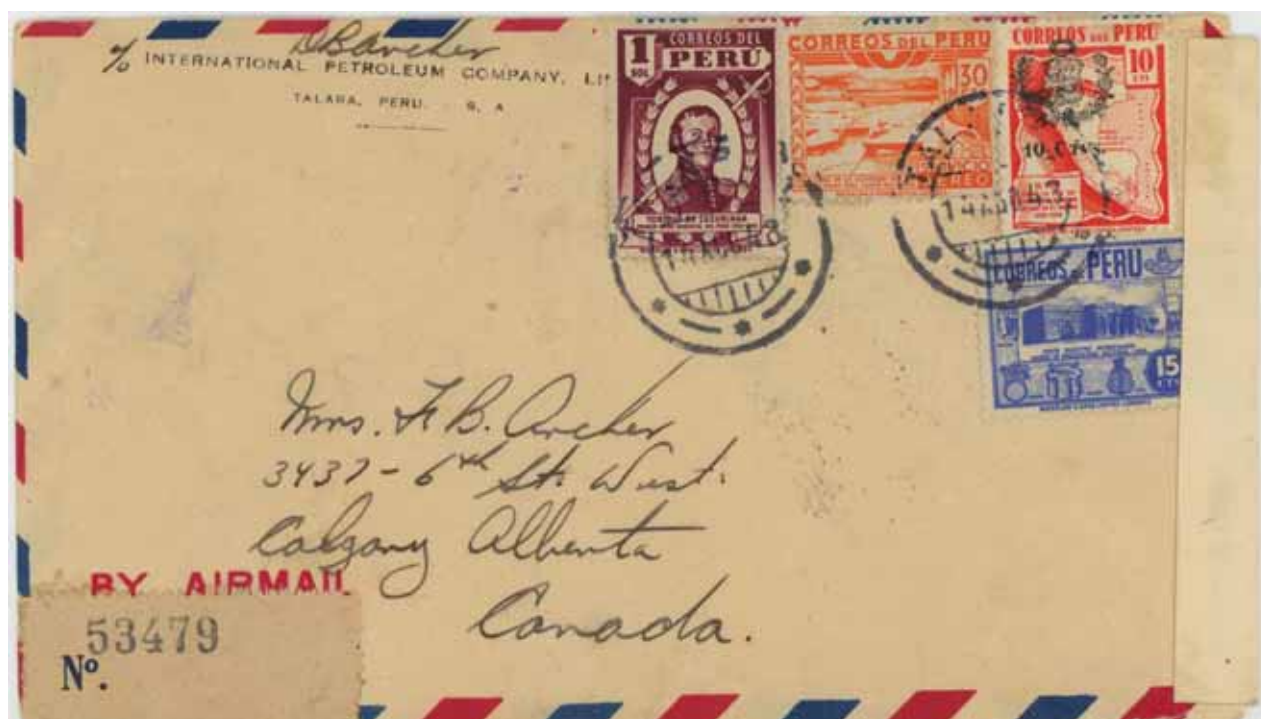 D B Archer
% INTERNATIONAL PETROLEUM COMPANY,
TALARA, PERU. S, A
1 SOL
CORREOS DEL
PERÚ
CORREOS DEL PERU
30
CORREOS DEL PERU
10
CTS
10 Cts
14 AGO. 43
14 AGO. 43
CORREOS PERU
15
CTS
Mrs. F. B. Archer
3437 - 6th St. West.
Calgary Alberta
Canada.
BY AIRMAIL
53479
Nº.